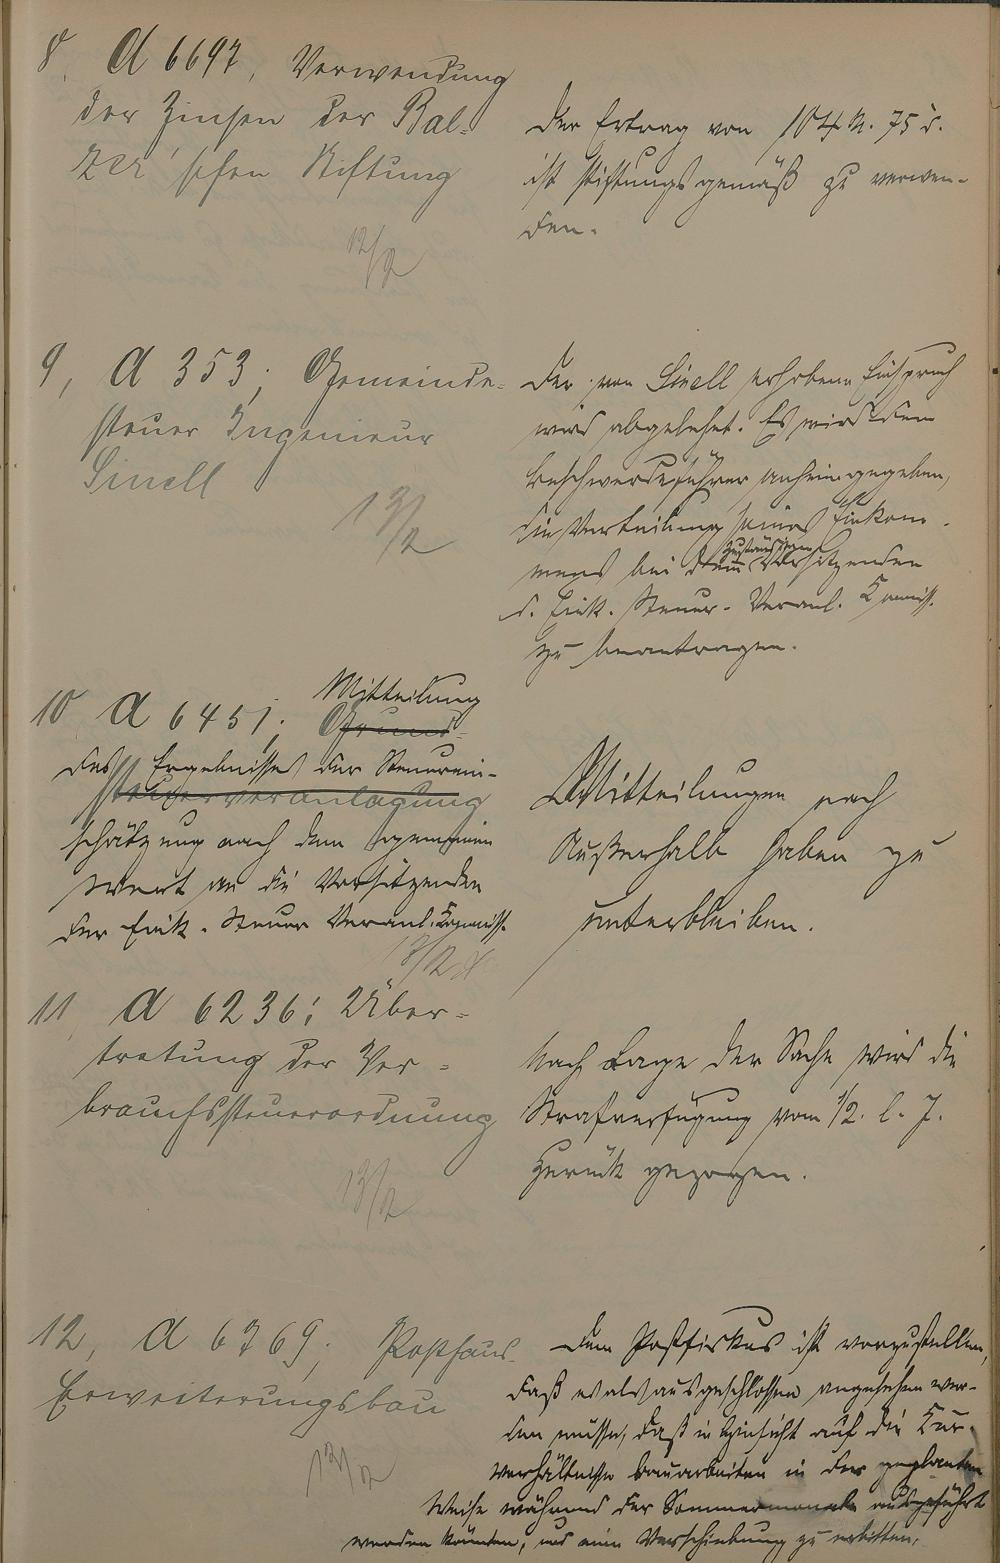 8. A 6697, Verwendung
der Zinsen der Bal-
zer'schen Stiftung
12/2
Der Ertrag von 104 M. 75 d.
ist stiftungsgemäß zu verwen-
den.
9, A 353; Gemeinde-
steuer Ingenieur
Sinell
13/2
Der von Sinell erhobene Einspruch
wird abgelehnt. Es wird dem
Beschwerdeführer anheimgegeben,
die Verteilung seines Einkom-
mens bei dem zuständigen Vorsitzenden
d. Eink. Steuer-Veranl. Kommiss.
zu beantragen.
10 A 6451; Mitteilung
Grund-
des Ergebnisses der Steuerein-
steuerveranlagung
schätzung nach dem gemeinen
Wert an die Vorsitzenden
der Eink. Steuer Veranl. Kommiss.
13/2
Mitteilungen nach
Außerhalb haben zu
unterbleiben.
11 A 6236; Über-
tretung der Ver-
brauchssteuerordnung
13/2
Nach Lage der Sache wird die
Strafverfügung vom 1/2. l. J.
zurück gezogen.
12, A 6769; Posthaus-
Erweiterungsbau
13/2
Dem Postfiskus ist vorzustellen,
daß es als ausgeschlossen angesehen wer-
den müsse, daß in Hinsicht auf die Kur-
verhältnisse Bauarbeiten in der geplanten
Weise während der Sommermonate ausgeführt
werden könnten, und eine Verschiebung zu erbitten.